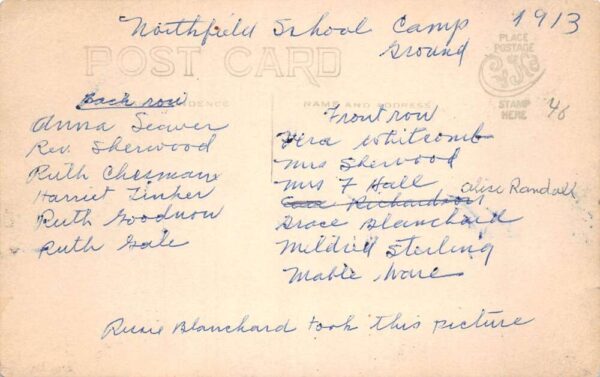 Northfield School Camp Ground
1913
POST CARD
PLACE POSTAGE STAMP HERE
CORRESPONDENCE
NAME AND ADDRESS
48
Back row
Anna Seaver
Rev. Sherwood
Ruth Chesman
Harriet Tinker
Ruth Goodnow
Ruth Gale
Front row
Vera Whitcomb
Mrs Sherwood
Mrs F Hall
Richardson Alise Randall
Grace Blanchard
Mildred Sterling
Mable Ware
Blanchard took this picture